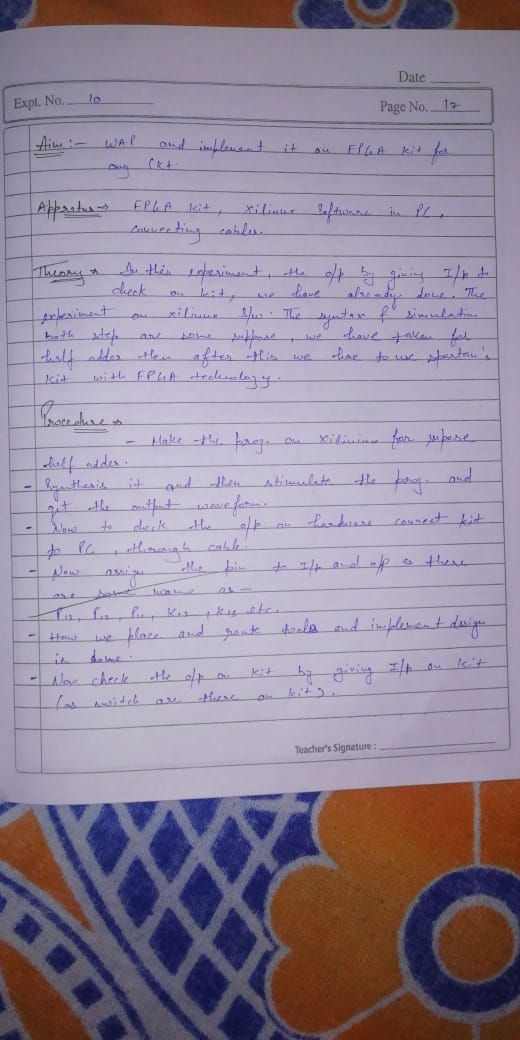 Date
Expt. No. 10
Page No. 17
Aim :- WAP and implement it on FPGA kit for
any Ckt.
Appratus → FPGA kit, xilinux software in PC,
connecting cables.
Theory → In this experiment, the o/p by giving I/p to
check on kit, we have already done. The
experiment on xilinux s/w. The syntax & simulation
both step are some suppose, we have taken for
half adder then after this we have to use spartan's
kit with FPGA technology.
Procedure →
- Make the prog. on Xilinux for supose
half adder.
- Synthesis it and then stimulate the prog. and
get the output waveform.
- Now to check the o/p on hardware connect kit
to PC, through cable.
- Now assign the pin to I/p and o/p as there
are some name as -
P13, P12, P11, K12, K13 etc.
- How we place and route tools and implement design
is done.
- Now check the o/p on kit by giving I/p on kit
(as switch are there on kit).
Teacher's Signature :